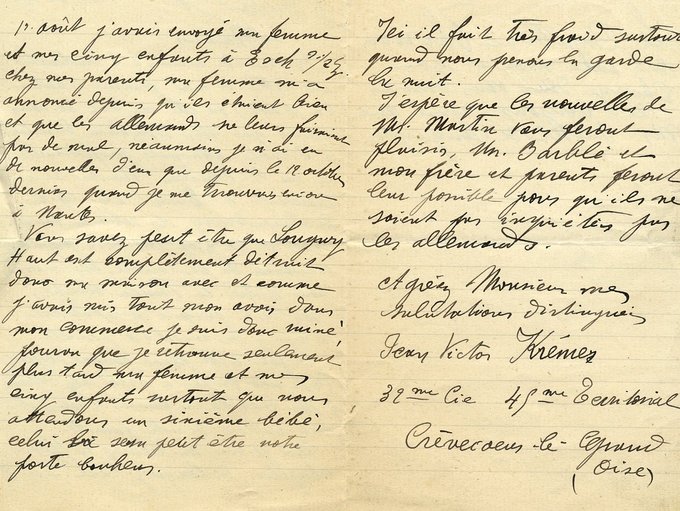 août j'avais envoyé ma femme
et mes cinq enfants à Esch s/Alz.
chez mes parents, ma femme m'a
annoncé depuis qu'ils étaient bien
et que les allemands ne leurs faisaient
pas de mal, néanmoins je n'ai eu
de nouvelles d'eux que depuis le 12 octobre
dernier quand je me trouvais encore
à
Vous savez peut être que Longwy
Haut est complètement détruit
donc ma maison avec et comme
j'avais mis tout mon avois dans
mon commerce je suis donc ruiné,
pourvu que je retrouve seulement
plus tard ma femme et mes
cinq enfants surtout que nous
attendons un sixième bébé,
celui sera petit être notre
porte bonheur.
Ici il fait très froid surtout
quand nous prenons la garde
la nuit.
J'espère que les nouvelles de
Mr. Martin vous feront
plaisir, Mr. Barblé et
mon frère et parents feront
leur possible pour qu'ils ne
soient pas inquiétés par
les allemands.
Agréez Monsieur mes
salutations distinguées
Jean Victor Krémer
32me Cie 45me Territorial
Crèvecoeur-le-Grand
(Oise)